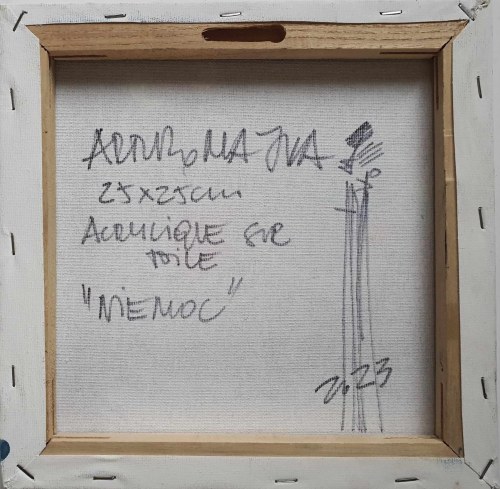 ARTURO MAJKA
25x25cm
ACRYLIQUE SUR
TOILE
"NIEMOC"
2023